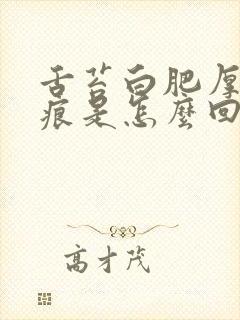 舌苔白肥厚
痕是怎麼回
高才茂